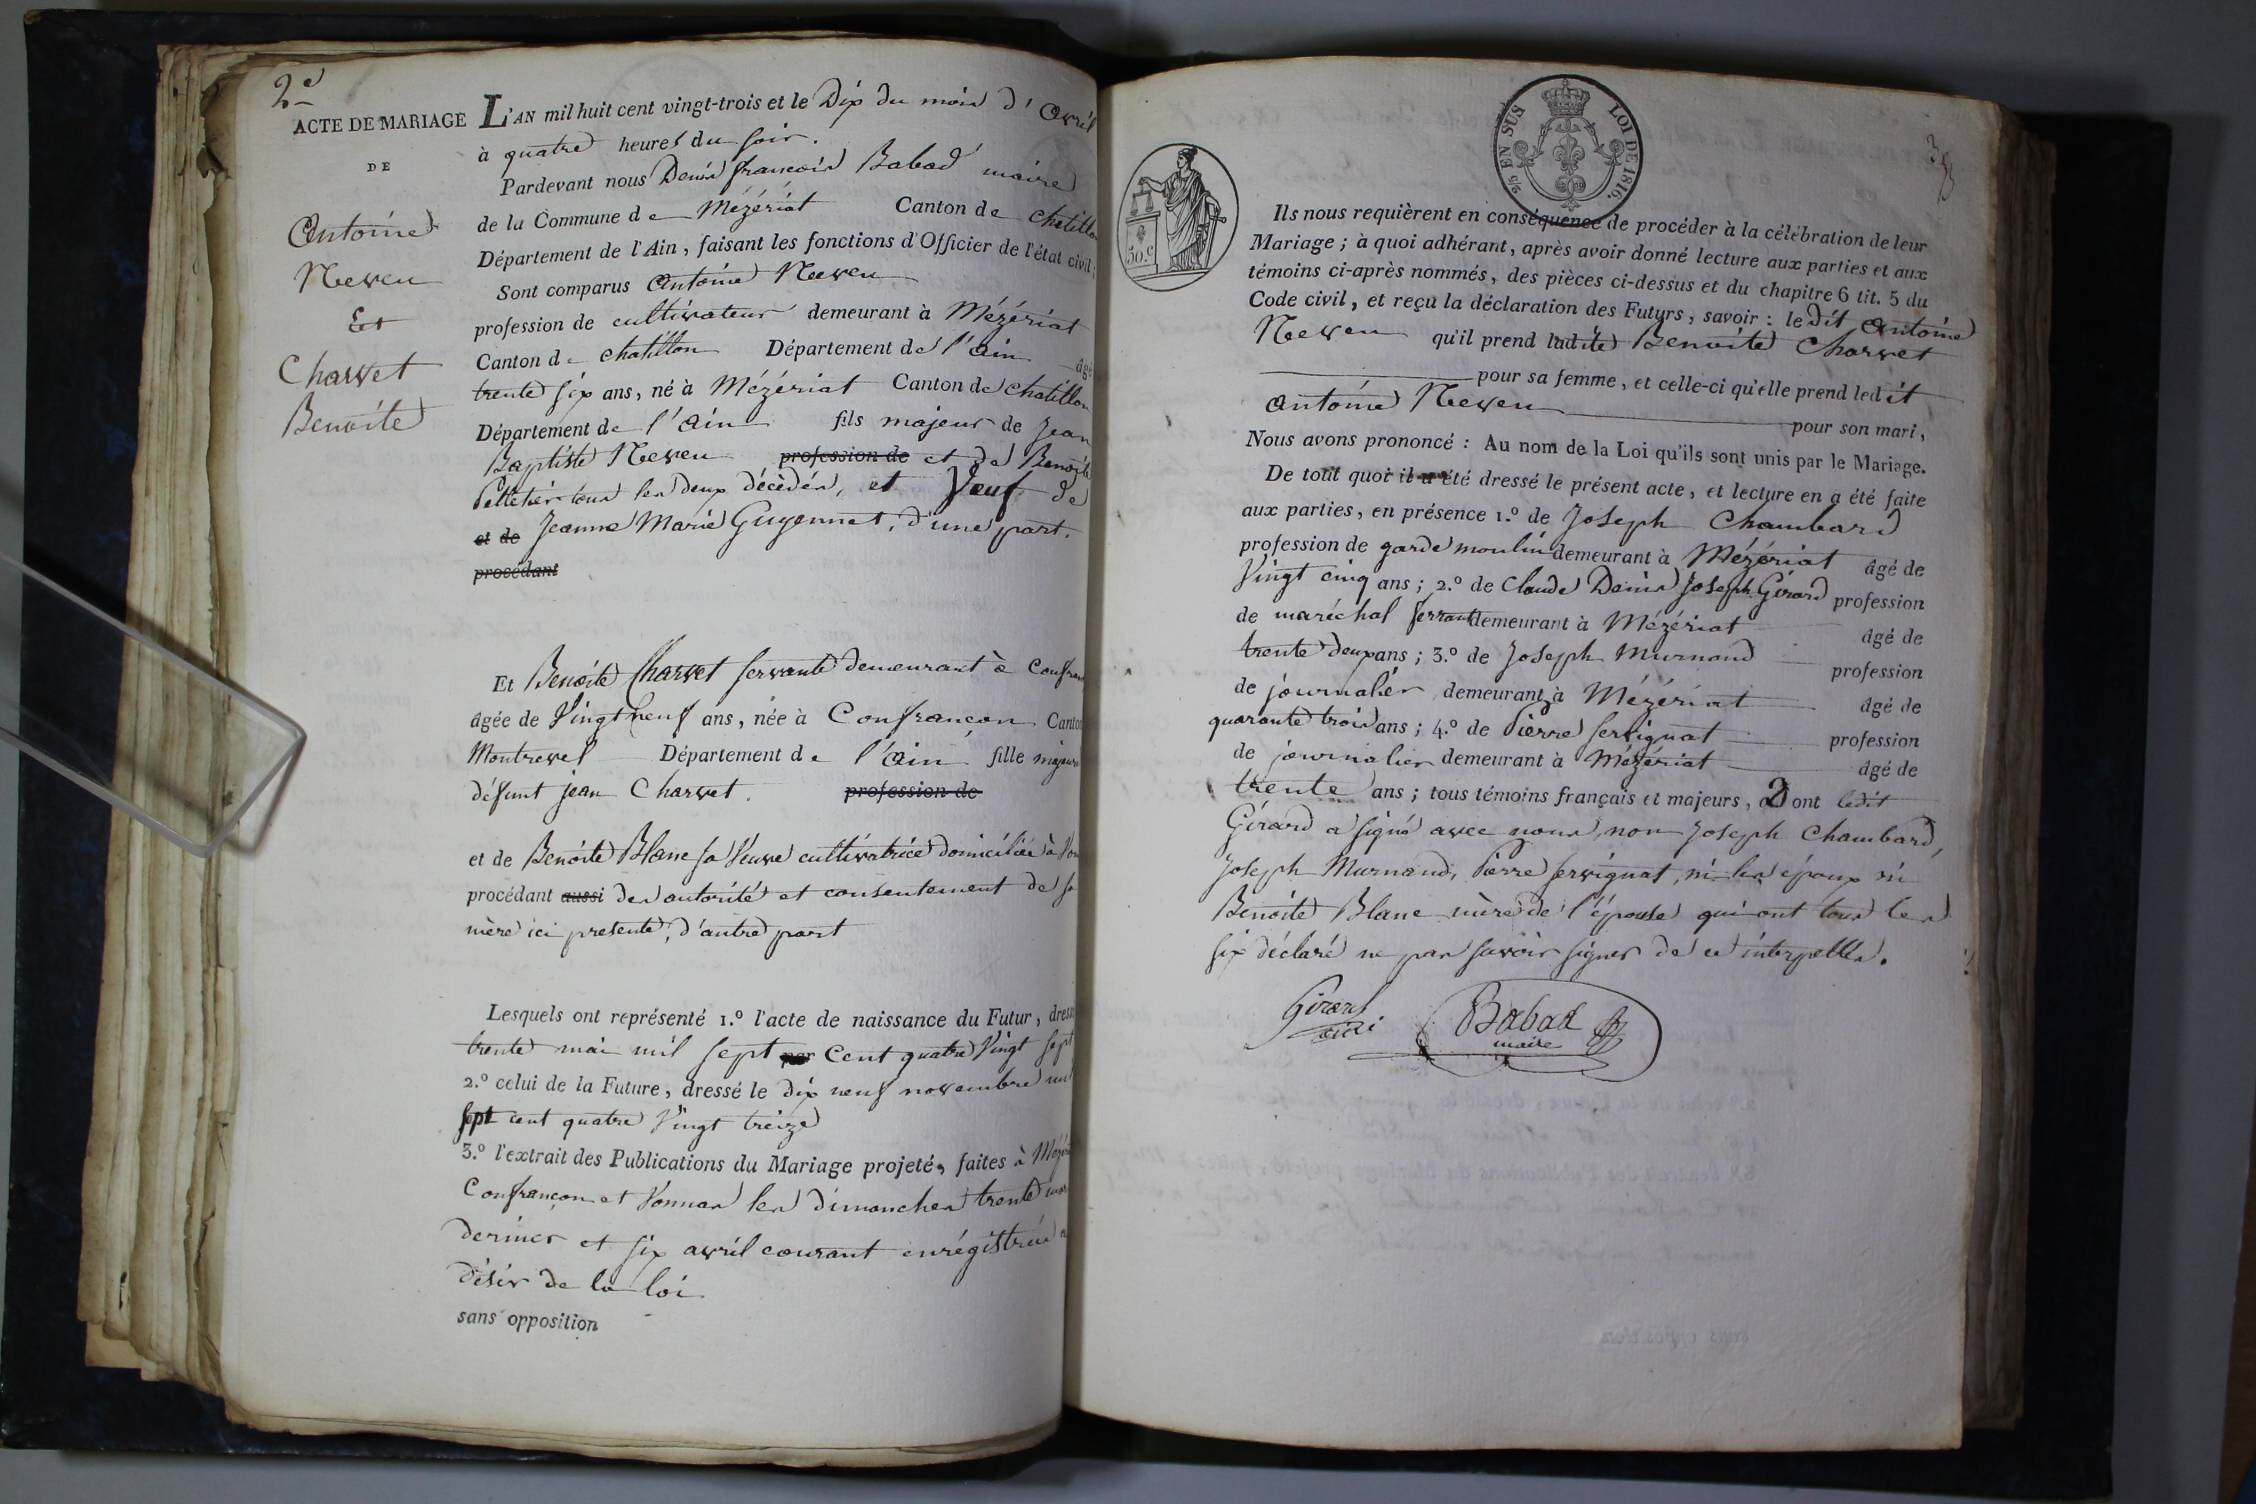 2e
ACTE DE MARIAGE
DE
Antoine
Neveu
Et
Charvet
Benoite
L'AN mil huit cent vingt-trois et le Dix du mois d'avril
à quatre heures du soir.
Pardevant nous Denis françois Babad maire
de la Commune de Mézériat Canton de chatillon
Département de l'Ain, faisant les fonctions d'Officier de l'état civil;
Sont comparus Antoine Neveu
profession de cultivateur demeurant à Mézériat
Canton de chatillon Département de l'ain âgé
trente six ans, né à Mézériat Canton de chatillon
Département de l'ain fils majeur de Jean
Baptiste Neveu profession de et de Benoite
Pelletier tous les deux décédés, et Veuf de
et de Jeanne Marie Guyennet, d'une part.
procédant
Et Benoite Charvet servante demeurant à Confran
âgée de Vingt neuf ans, née à Confrançon Canton
Montrevel Département de l'ain fille majeure
défunt jean Charvet. profession de
et de Benoite Blanc sa Veuve cultivatrice domiciliée à Von
procédant aussi des autorité et consentement de sa
mère ici presente, d'autre part
Lesquels ont représenté 1.º l'acte de naissance du Futur, dressé
trente mai mil sept cent quatre Vingt sept
2.º celui de la Future, dressé le dix neuf novembre mil
sept cent quatre Vingt treize
3.º l'extrait des Publications du Mariage projeté, faites à Mézéri
Confrançon et Vonnas les dimanches trente mars
dernier et six avril courant enrégistrées a
désir de la loi
sans opposition
2/5 EN SUS LOI DE 1816.
50.C
39
Ils nous requièrent en conséquence de procéder à la célébration de leur
Mariage; à quoi adhérant, après avoir donné lecture aux parties et aux
témoins ci-après nommés, des pièces ci-dessus et du chapitre 6 tit. 5 du
Code civil, et reçu la déclaration des Futurs, savoir: le dit Antoine
Neveu qu'il prend ladite Benoite Charvet
pour sa femme, et celle-ci qu'elle prend ledit
antoine Neveu pour son mari,
Nous avons prononcé: Au nom de la Loi qu'ils sont unis par le Mariage.
De tout quoi il a été dressé le présent acte, et lecture en a été faite
aux parties, en présence 1.º de Joseph Chambard
profession de garde moulin demeurant à Mézériat âgé de
Vingt cinq ans; 2.º de Claude Denis Joseph Girard profession
de maréchal ferrant demeurant à Mézériat âgé de
trente deux ans; 3.º de Joseph Murnand profession
de journalier demeurant à Mézériat âgé de
quarante trois ans; 4.º de Pierre Servignat profession
de journalier demeurant à Mézériat âgé de
trente ans; tous témoins français et majeurs, Dont ledit
Girard a signé avec nous, non Joseph Chambard,
Joseph Murnand, Pierre Servignat, ni les époux ni
Benoite Blanc mère de l'épouse qui ont tous les
six déclaré ne pas savoir signer de ce interpellés.
Girard
Babad
maire